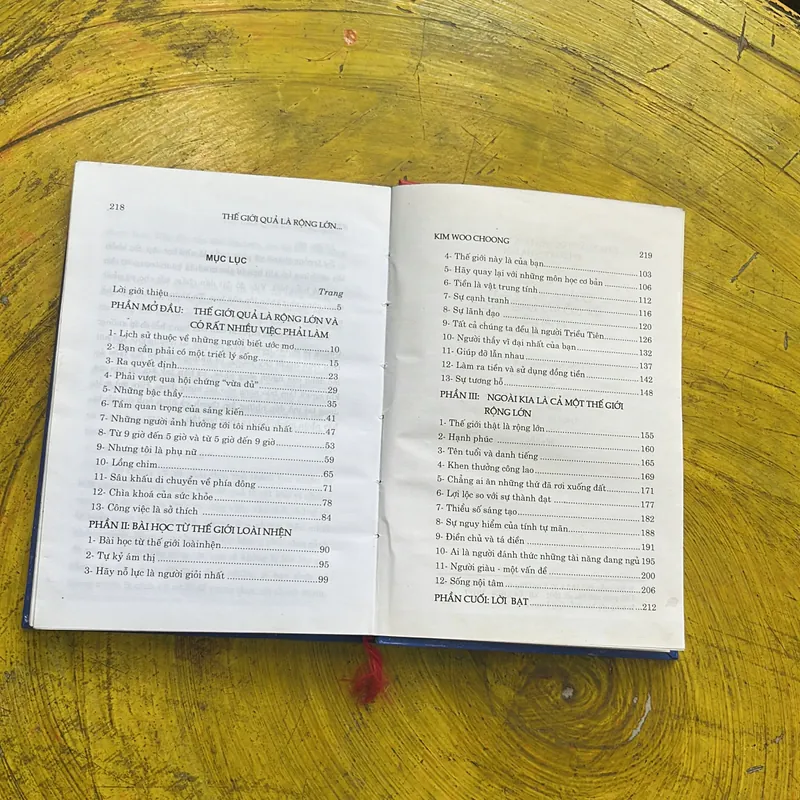 218
THẾ GIỚI QUẢ LÀ RỘNG LỚN...
MỤC LỤC
Trang
Lời giới thiệu ..... 5
PHẦN MỞ ĐẦU: THẾ GIỚI QUẢ LÀ RỘNG LỚN VÀ
CÓ RẤT NHIỀU VIỆC PHẢI LÀM
1- Lịch sử thuộc về những người biết ước mơ ..... 10
2- Bạn cần phải có một triết lý sống ..... 15
3- Ra quyết định ..... 23
4- Phải vượt qua hội chứng "vừa đủ" ..... 29
5- Những bậc thầy ..... 35
6- Tầm quan trọng của sáng kiến ..... 41
7- Những người ảnh hưởng tới tôi nhiều nhất ..... 47
8- Từ 9 giờ đến 5 giờ và từ 5 giờ đến 9 giờ ..... 53
9- Nhưng tôi là phụ nữ ..... 59
10- Lồng chim ..... 65
11- Sân khấu di chuyển về phía đông ..... 71
12- Chìa khoá của sức khỏe ..... 78
13- Công việc là sở thích ..... 84
PHẦN II: BÀI HỌC TỪ THẾ GIỚI LOÀI NHỆN
1- Bài học từ thế giới loàinhện ..... 90
2- Tự kỷ ám thị ..... 95
3- Hãy nỗ lực là người giỏi nhất ..... 99
KIM WOO CHOONG
219
4- Thế giới này là của bạn ..... 103
5- Hãy quay lại với những môn học cơ bản ..... 106
6- Tiền là vật trung tính ..... 112
7- Sự cạnh tranh ..... 116
8- Sự lãnh đạo ..... 120
9- Tất cả chúng ta đều là người Triều Tiên ..... 126
10- Người thầy vĩ đại nhất của bạn ..... 132
11- Giúp đỡ lẫn nhau ..... 137
12- Làm ra tiền và sử dụng đồng tiền ..... 142
13- Sự tương hỗ ..... 148
PHẦN III: NGOÀI KIA LÀ CẢ MỘT THẾ GIỚI
RỘNG LỚN
1- Thế giới thật là rộng lớn ..... 155
2- Hạnh phúc ..... 160
3- Tên tuổi và danh tiếng ..... 165
4- Khen thưởng công lao ..... 169
5- Chẳng ai ăn những thứ đã rơi xuống đất ..... 171
6- Lợi lộc so với sự thành đạt ..... 177
7- Thiểu số sáng tạo ..... 182
8- Sự nguy hiểm của tính tự mãn ..... 188
9- Điền chủ và tá điền ..... 191
10- Ai là người đánh thức những tài năng đang ngủ 195
11- Người giàu - một vấn đề ..... 200
12- Sống nội tâm ..... 206
PHẦN CUỐI: LỜI BẠT ..... 212